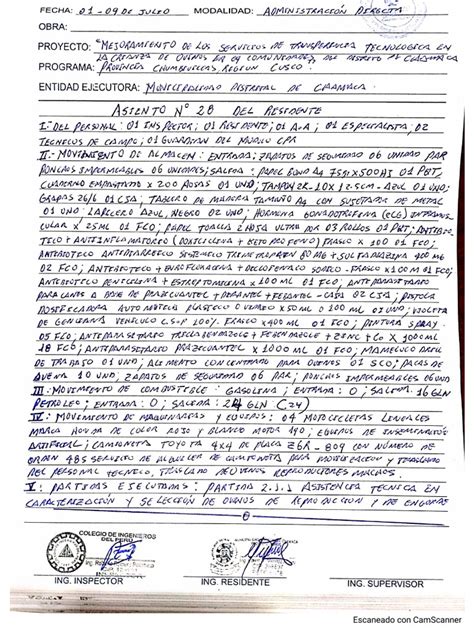 FECHA: 01-09 DE JULIO MODALIDAD: ADMINISTRACIÓN DIRECTA
OBRA:
PROYECTO: "MEJORAMIENTO DE LOS SERVICIOS DE TRANSFERENCIA TECNOLOGICA EN
LA CRIANZA DE OVINOS EN 09 COMUNIDADES, DEL DISTRITO DE CCAMACA
PROGRAMA: PROVINCIA CHUMBIVILCAS, REGION CUSCO.
ENTIDAD EJECUTORA: MUNICIPALIDAD DISTRITAL DE
ASIENTO N° 28 DEL RESIDENTE
I.- DEL PERSONAL: 01 INSPECTOR; 01 RESIDENTE; 01 A.A; 01 ESPECIALISTA; 02
TECNICOS DE CAMPO; 01 GUARDIAN DEL MODULO CPR
II.- MOVIMIENTO DE ALMACEN: ENTRADA: ZAPATOS DE SEGURIDAD 06 UNIDAD PAR
PONCHOS IMPERMEABLES 06 UNIDADES; SALIDA: PAPEL BOND A4 75gr X500HJ 01 PQT,
CUADERNO EMPASTADO X 200 HOJAS 01 UND; TAMPON 2R-10 X 12.5cm-AZUL 01 UND;
GRAPAS 26/6 01 CJA; TABLERO DE MADERA TAMAÑO A4 CON SUJETADOR DE METAL
01 UND; LAPICERO AZUL, NEGRO 02 UND; HORMONA GONADOTROFINA (ECG) INTRAMUS-
CULAR X 25ML 01 FCO; PAPEL TOALLA 2 HOJA ULTRA POR 03 ROLLOS 01 PQT; ANTIBIO-
TICO + ANTIINFLAMATORIO (DOXICICLINA + KETOPROFENO) FRASCO X 100 01 FCO;
ANTIBIOTICO ANTIDIARREICO SISTEMICO TRIMETROPIM 80 MG + SULFADIAZINA 400 MG
02 FCO; ANTIBIOTICO + ENROFLOXACINA + DICLOFENACO SODICO - FRASCO X 100M 01 FCO;
ANTIBIOTICO PENICILINA + ESTREPTOMICINA X 100 ML 01 FCO; ANTIPARASITARIO
PARA CANES A BASE DE PRAZICUANTEL + PIRANTEL + FEBANTEL - CAJA 02 CJA; PISTOLA
DOSIFICADORA AUTOMATICA PLASTICO O VIDRIO X 50 ML O 100 ML 03 UND; VIOLETA
DE GENCIANA VEHICULO C.S.P 100% FRASCO X 400 ML 01 FCO; PINTURA SPRAY
05 FCO; ANTIPARASITARIO TRICLABENDAZOLE + FEBENDAZOLE + ZINC + Co X 1000 ML
18 FCO; ANTIPARASITARIO PRAZICUANTEL X 1000 ML 01 FCO; MAMELUCO DRIL
DE TRABAJO 01 UND; ALIMENTO CONCENTRADO PARA OVINOS 01 SCO; PACAS DE
AVENA 10 UND; ZAPATOS DE SEGURIDAD 06 PAR; PONCHOS IMPERMEABLES 06 UND
III.- MOVIMIENTO DE COMBUSTIBLE: GASOLINA; ENTRADA: 0; SALIDA: 16 GLN
PETROLEO; ENTRADA: 0; SALIDA: 24 GLN (24)
IV.- MOVIMIENTO DE MAQUINARIAS Y EQUIPOS: 04 MOTOCICLETAS LINEALES
MARCA HONDA DE COLOR ROJO Y BLANCO MOTOR 190; EQUIPOS DE INSEMINACIÓN
ARTIFICIAL; CAMIONETA TOYOTA 4X4 DE PLACA Z6R-809 CON NUMERO DE
ORDEN 485 SERVICIO DE ALQUILER DE CAMIONETA PARA MOVILIZACION Y TRASLADO
DEL PERSONAL TECNICO, TRASLADO DE OVINOS REPRODUCTORES MACHOS.
V.- PARTIDAS EJECUTADAS: PARTIDA 2.1.1 ASISTENCIA TECNICA EN
CARACTERIZACIÓN Y SELECCIÓN DE OVINOS DE REPRODUCCION Y DE ENGORDE
COLEGIO DE INGENIEROS
DEL PERÚ
ING. INSPECTOR ING. RESIDENTE ING. SUPERVISOR
Escaneado con CamScanner